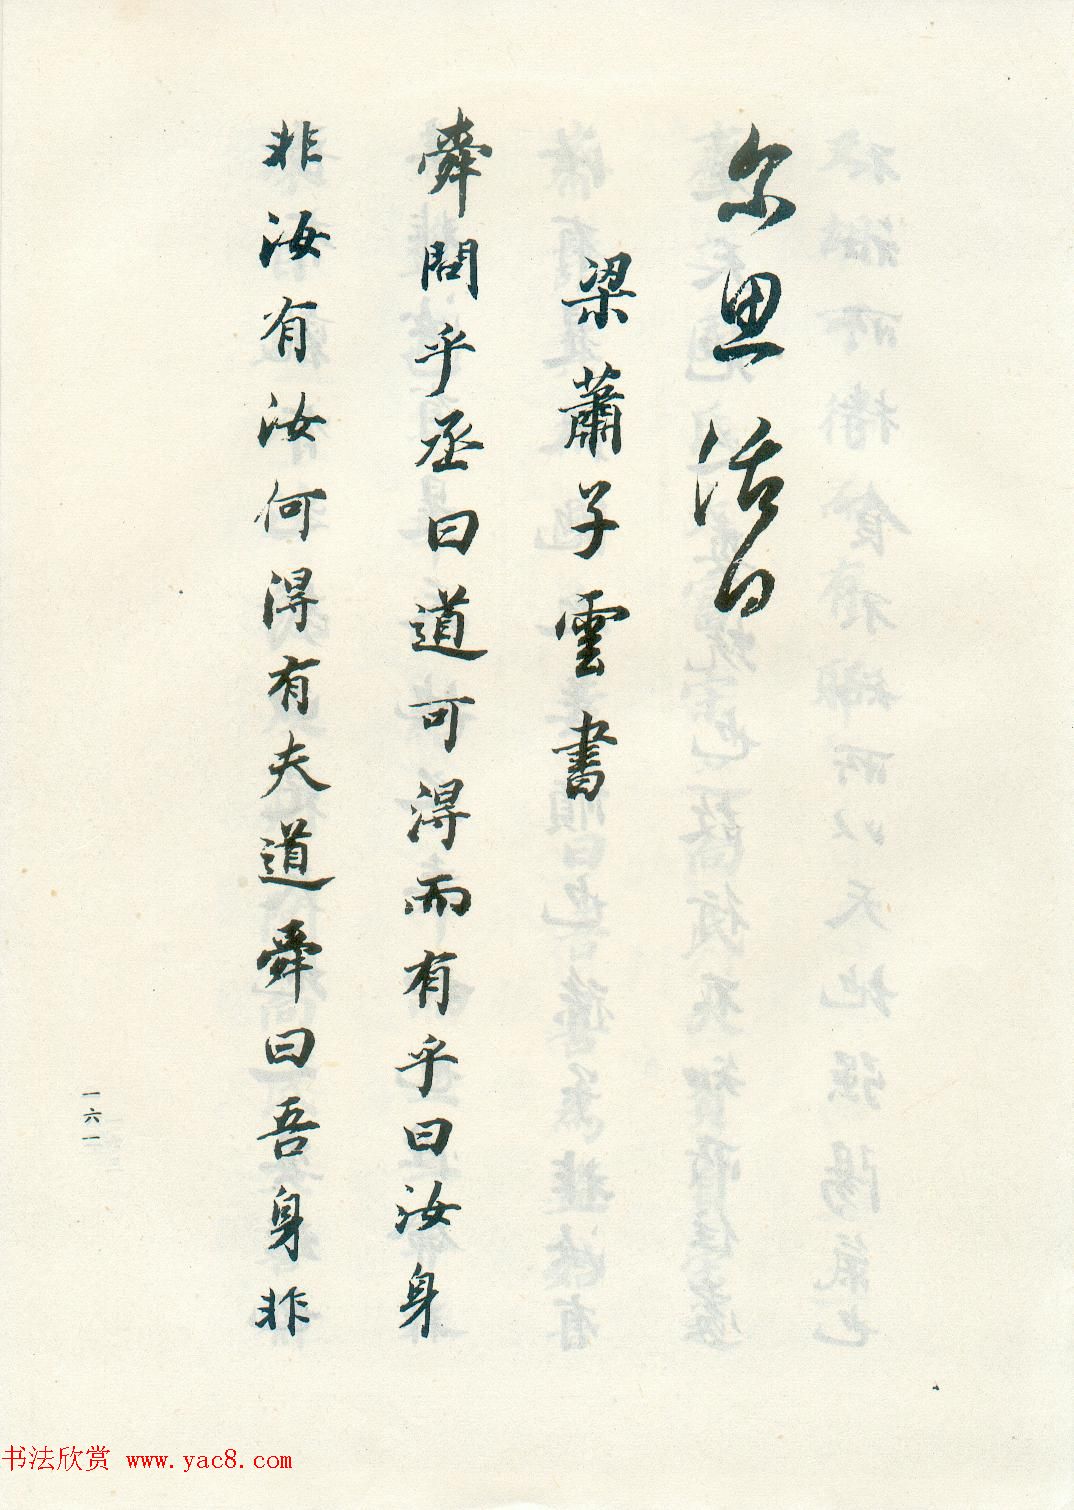 尔思活日
梁蕭子雲書
舜問乎丞曰道可得而有乎曰汝身
非汝有汝何得有夫道舜曰吾身非
一六一
书法欣赏 www.yac8.com